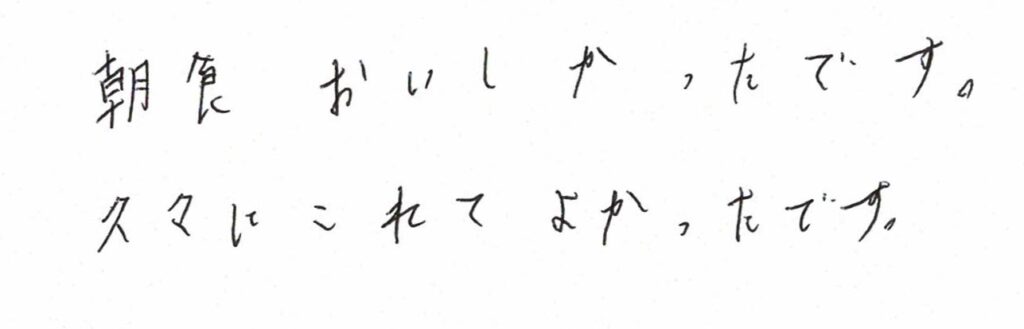 朝食 おいしかったです。
久々にこれてよかったです。